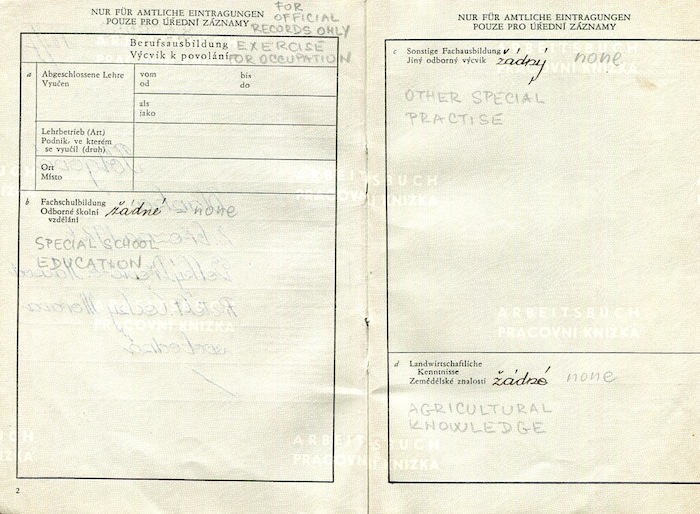 NUR FÜR AMTLICHE EINTRAGUNGEN
POUZE PRO ÚŘEDNÍ ZÁZNAMY
FOR
OFFICIAL
RECORDS ONLY
Berufsausbildung
Výcvik k povolání
EXERCISE
FOR OCCUPATION
a Abgeschlossene Lehre vom bis
Vyučen od do
als
jako
Lehrbetrieb (Art)
Podnik, ve kterém
se vyučil (druh)
Ort
Místo
b Fachschulbildung
Odborné školní žádné none
vzdělání
SPECIAL SCHOOL
EDUCATION
2
NUR FÜR AMTLICHE EINTRAGUNGEN
POUZE PRO ÚŘEDNÍ ZÁZNAMY
c Sonstige Fachausbildung
Jiný odborný výcvik žádný none
OTHER SPECIAL
PRACTISE
ARBEITSBUCH
PRACOVNÍ KNÍŽKA
ARBEITSBUCH
PRACOVNÍ KNÍŽKA
d Landwirtschaftliche
Kenntnisse
Zemědělské znalosti žádné none
AGRICULTURAL
KNOWLEDGE
ARBEITSBUCH
PRACOVNÍ KNÍŽKA